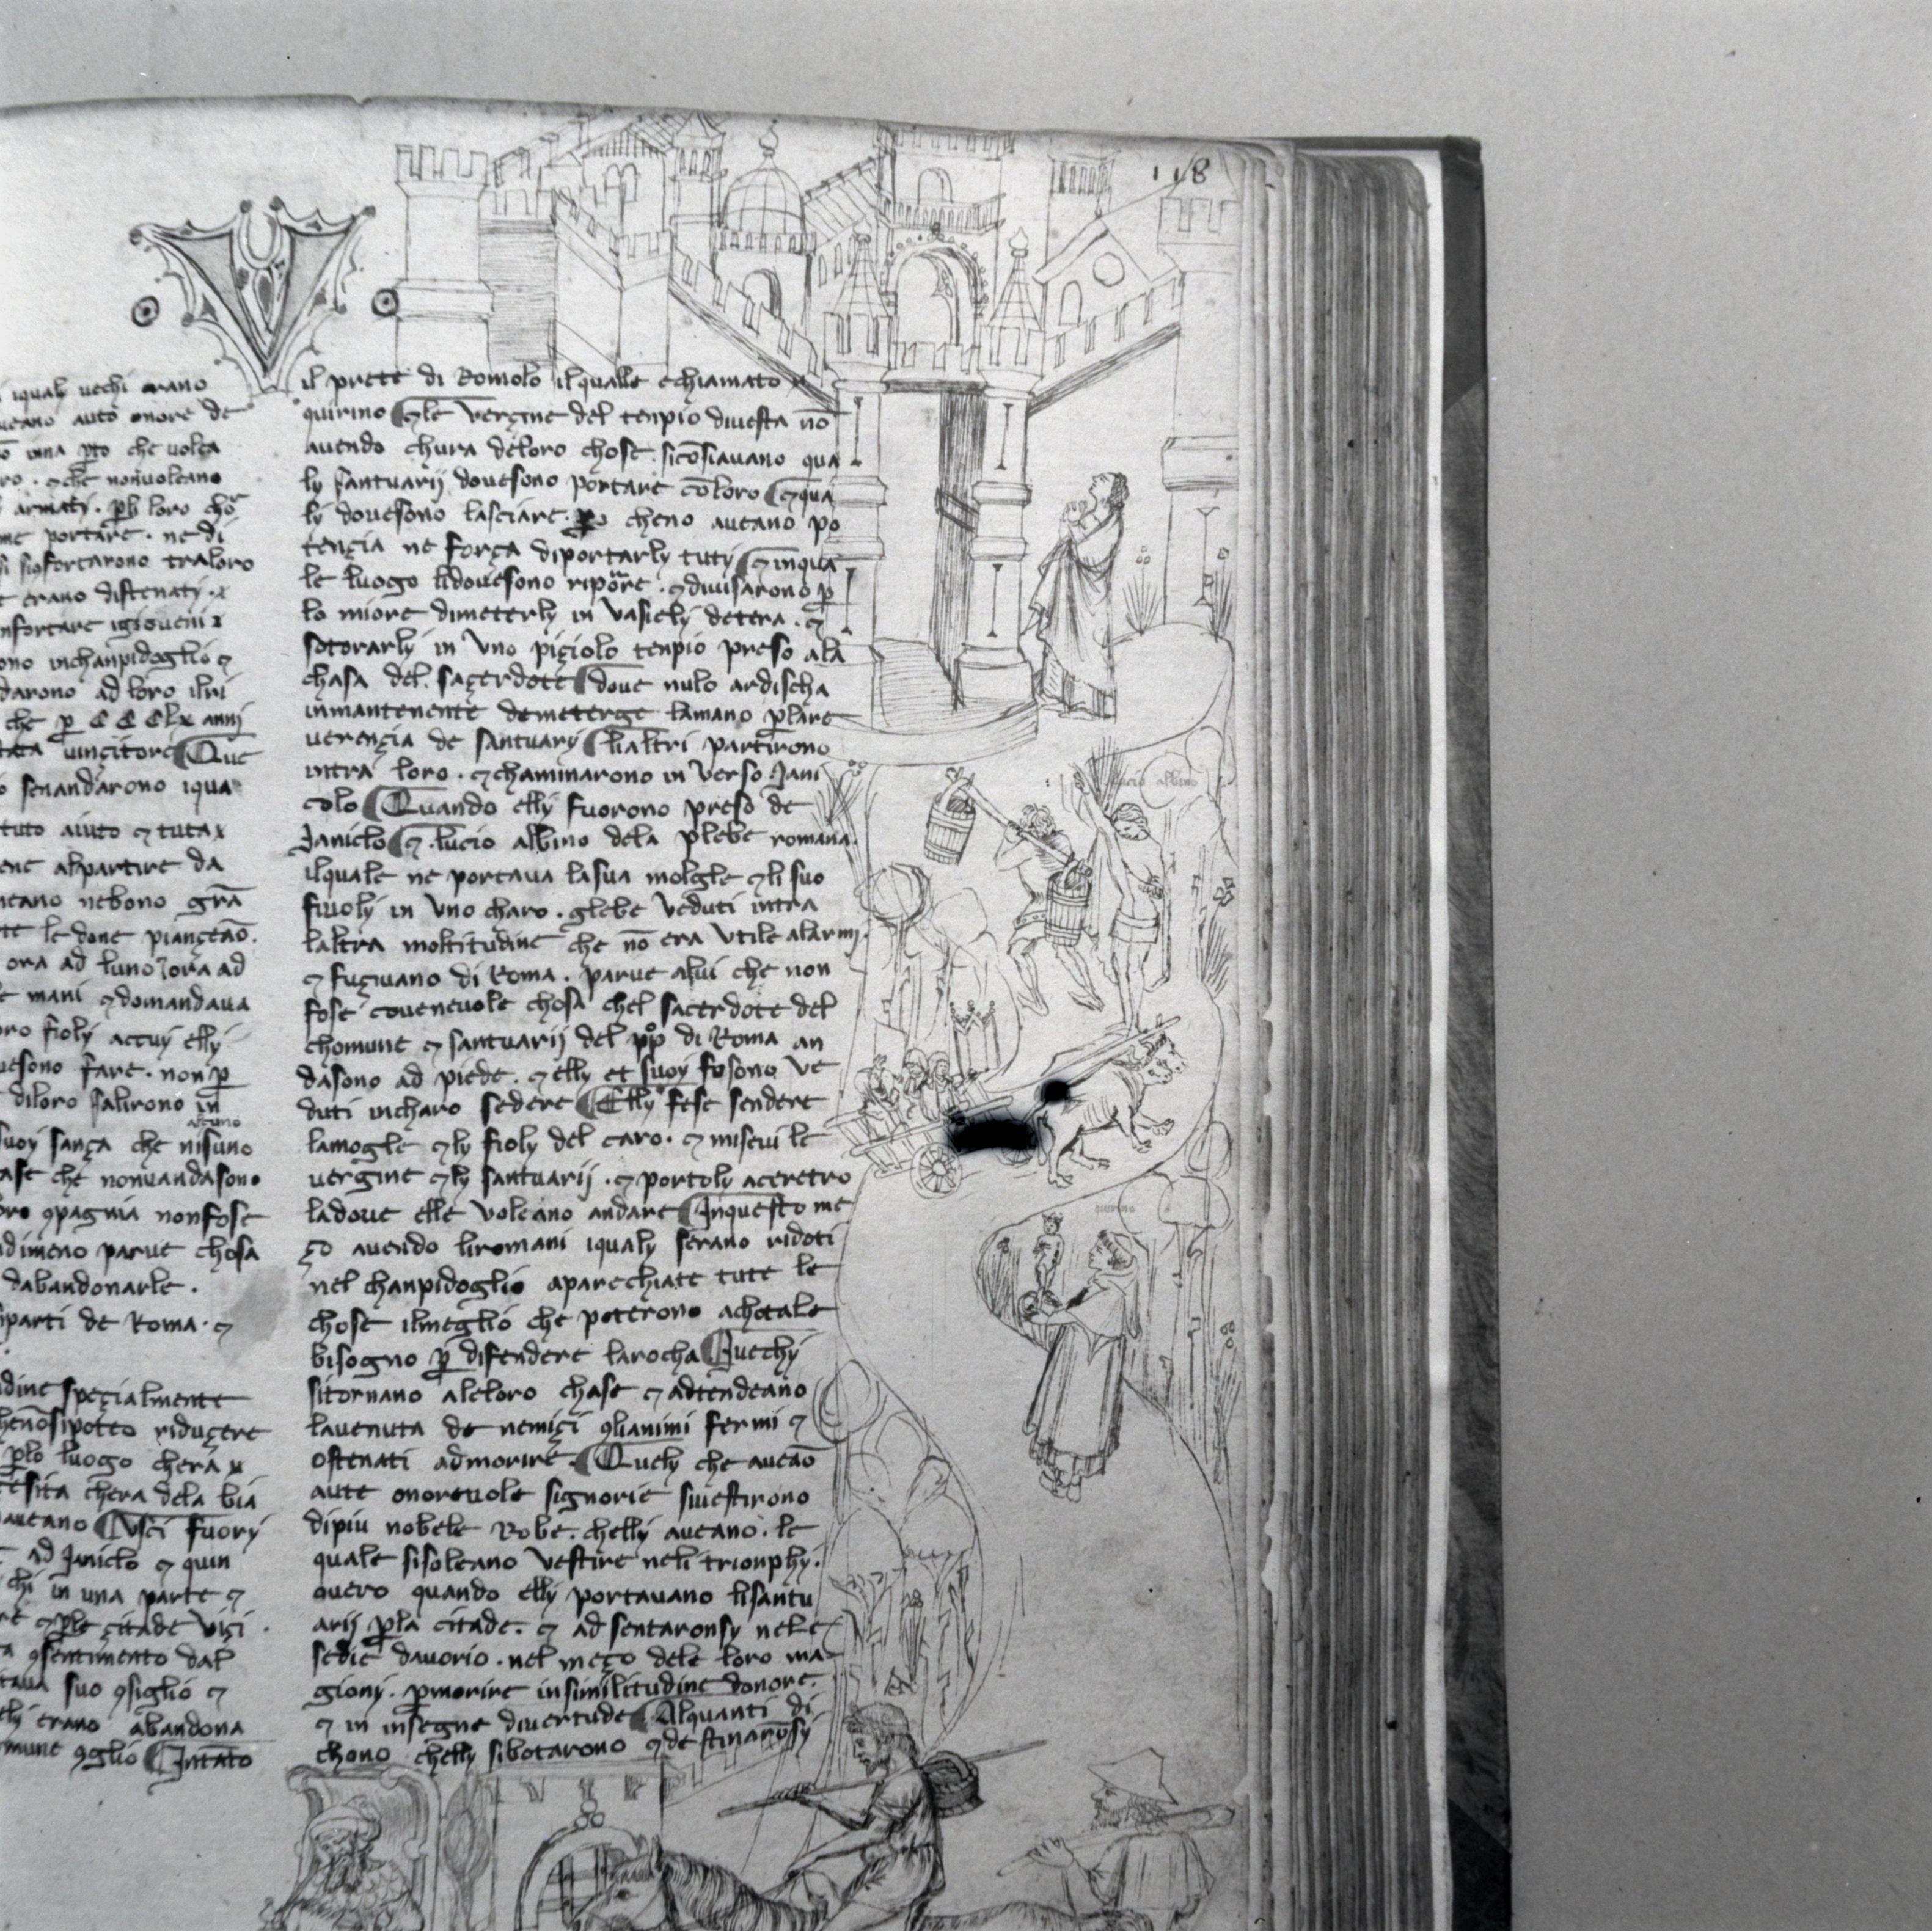 118
V
iqual uechi erano
ueano auto onore de
una pto che uolea
ro . ⁊ che nonuoleano
armati . p li loro cho
me portare . ne di
si sforcarono traloro
erano distenati .
nfortare igioueni
ono inchanpidoglio ⁊
darono ad loro ilri
che p CCCLX annj
uincitore Que
senandarono iqua
tuto aiuto ⁊ tuta
ene alpartire da
ueano nebono grã
te le done piançeaõ .
ora ad luno ⁊ ora ad
mani ⁊ domandaua
oro fioly accuy elly
uesono fare . non p
diloro salirono in
alcuno
suoy sança che nisuno
ase che nonuandasono
oro 9pagnia nonfose
dimeno parue chosa
dabandonarle .
parti de Roma . ⁊
dine specialmente
henõsipoteo riduçere
plo luogo chera
sita chera dela bia
aueano Usci fuory
ad Janiclo ⁊ quin
chi in una parte ⁊
⁊ ple citade uici
9sentimento dal
taua suo 9siglio ⁊
ely erano abandona
mune 9glio Intãto
il prete di Romolo ilqualle echiamato
quirino ⁊ le vergine del tenpio diuesta nõ
auendo chura deloro chose . sicõsiauano qua
ly santuarij douesono portare cõloro ⁊ qua
ly douesono lasciare . po cheno aueano po
tençia ne força diportarly tuty ⁊ inqua
le luogo lidouesono riporre . ⁊ diuisarono p
lo miore dimeterly in Vasiely detera . ⁊
sotorarly in Vno piçiolo tenpio preso ala
chasa del sacerdote doue nulo ardischa
inmantenente demeterge lamano plare
uerençia de santuary lialtri partirono
intra loro . ⁊ chaminarono in verso Jani
colo Quando elly fuorono preso de
Janiclo ⁊ . lucio albino dela plebe romana .
ilquale ne portaua lasua molgle ⁊ li suo
fiuoly in Vno charo . glebe Veduti intra
laltra moltitudine che nõ era Vtile alarmj .
⁊ fugiuano di Roma . parue alui che non
fose coueneuole chosa chel sacerdote del
chomune ⁊ santuarij del ppo di Roma an
dasono ad piede . ⁊ elly et suoy fosono Ve
duti incharo sedere Elly fese sendere
lamogle ⁊ ly fioly del caro . ⁊ miseui le
vergine ⁊ ly santuarij . ⁊ portoly aceretro
ladoue elle Voleano andare Inquesto me
ço auendo liromani iqualy serano ridoti
nel chanpidoglio aparechiate tute le
chose ilmeglio che poterono achotale
bisogno p difendere larocha Quechy
sitornano aleloro chase ⁊ adtendeano
lauenuta de nemiçi 9lianimi fermi ⁊
ostenati admorire . Quely che aueão
aute onoreuole signorie siuestirono
dipiu nobele Robe . chelly aueano . le
quale sisoleano Vestire neli trionphy .
ouero quando elly portauano lisantu
arij pla citade . ⁊ ad sentaronsy nele
sedie dauorio . nel meço dele loro ma
giony . pmorire insimilitudine donore .
⁊ in insegne diuertude Alquanti di
chono chelly sibotarono 9destinaronsy
lucio albino
quirino